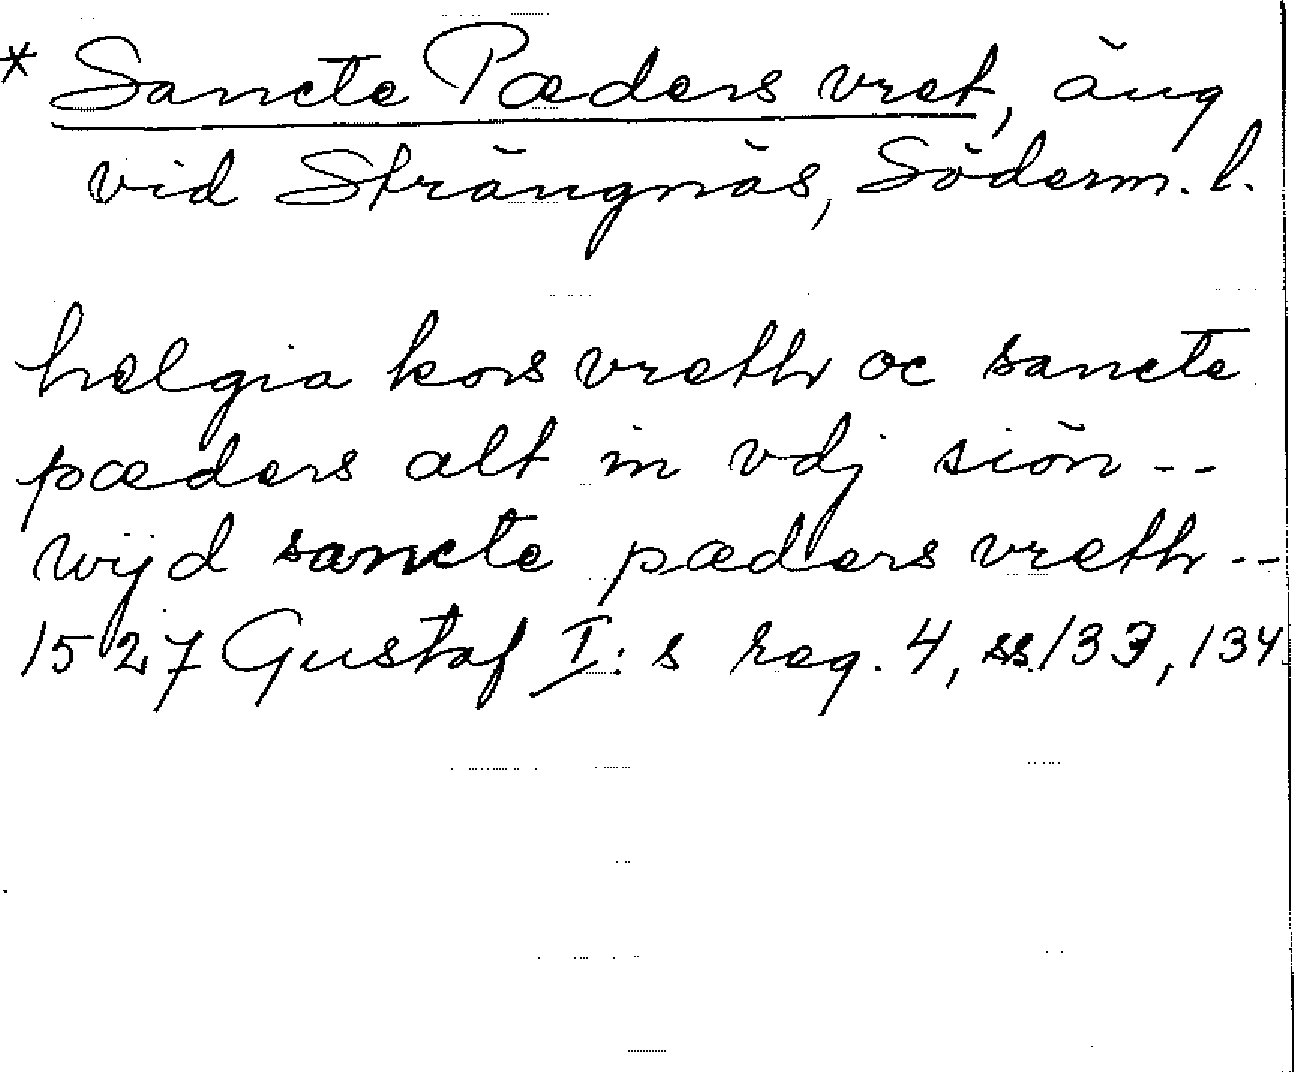 * Sancte Pæders vret, äng
vid Strängnäs, Söderm. l.
helgia kors vreth oc sancte
pæders alt in vdj siön --
wijd sancte pæders vreth --
1527 Gustaf I:s reg. 4, ss. 133, 134